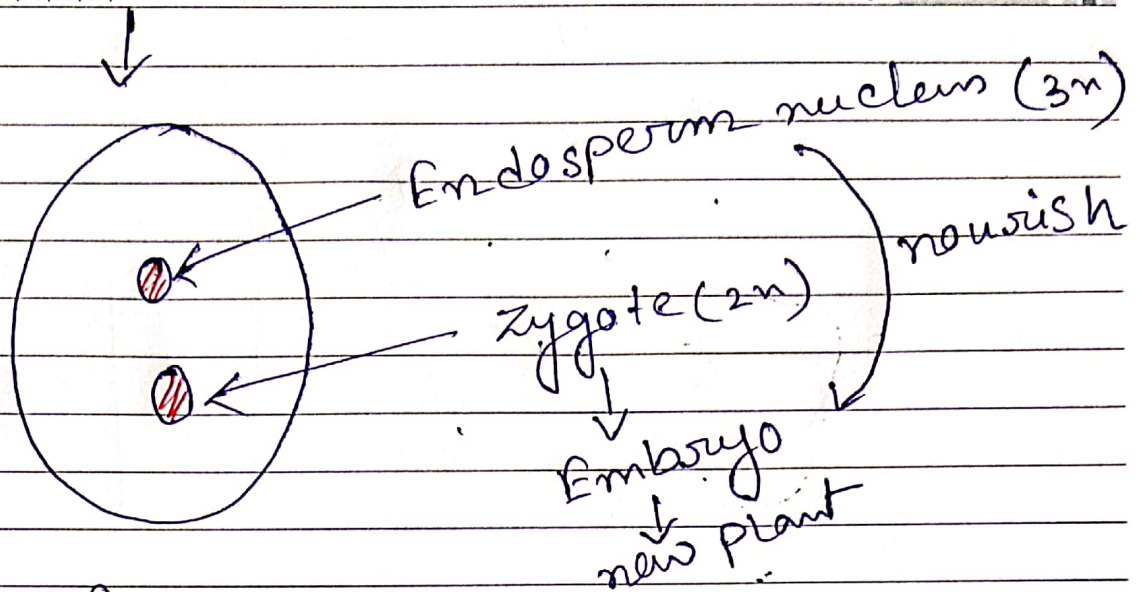 Endosperm nucleus (3n)
nourish
Zygote (2n)
Embryo
new plant